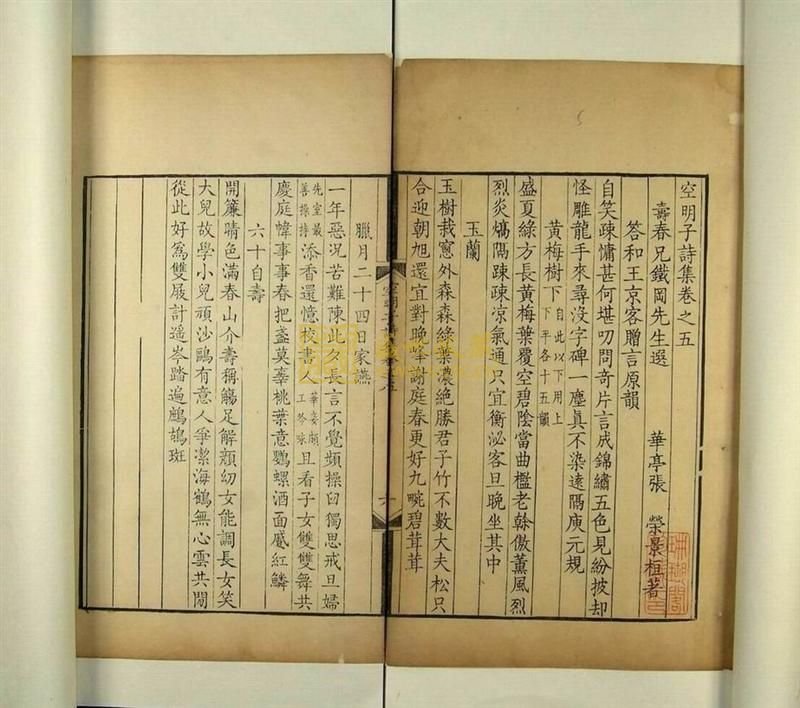 空明子詩集卷之五
壽春兄鐵岡先生選　華亭張　榮景桓著
答和王京客贈言原韻
自笑疎慵甚何堪叨問奇片言成錦繡五色見紛披却
怪雕龍手來尋沒字碑一塵眞不染遠隔庾元規
黃梅樹下自此以下用上下平各十五韻
盛夏綠方長黃梅葉覆空碧陰當曲檻老榦傲薰風烈
烈炎熇隔疎疎凉氣通只宜衡泌客旦晚坐其中
玉蘭
玉樹栽窻外森森綠葉濃絶勝君子竹不數大夫松只
合迎朝旭還宜對晚峰謝庭春更好九畹碧茸茸
空明子詩
臘月二十四日家燕
一年惡况苦難陳此夕長言不覺頻操臼獨思戒旦婦
先室最善操持添香還憶校書人華妾頗工吟咏且看子女雙雙舞共
慶庭幃事事春把盞莫辜桃葉意鸚螺酒面蹙紅鱗
六十自壽
開簾晴色滿春山介壽稱觴足解顏幼女能調長女笑
大兒故學小兒頑沙鷗有意人爭潔海鶴無心雲共閒
從此好爲雙屐計遥岑踏遍鷓鴣斑